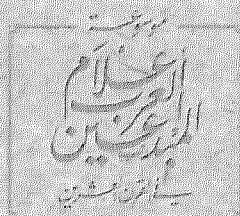 موسوعة
أعلام
العرب
المبدعين
في القرن العشرين